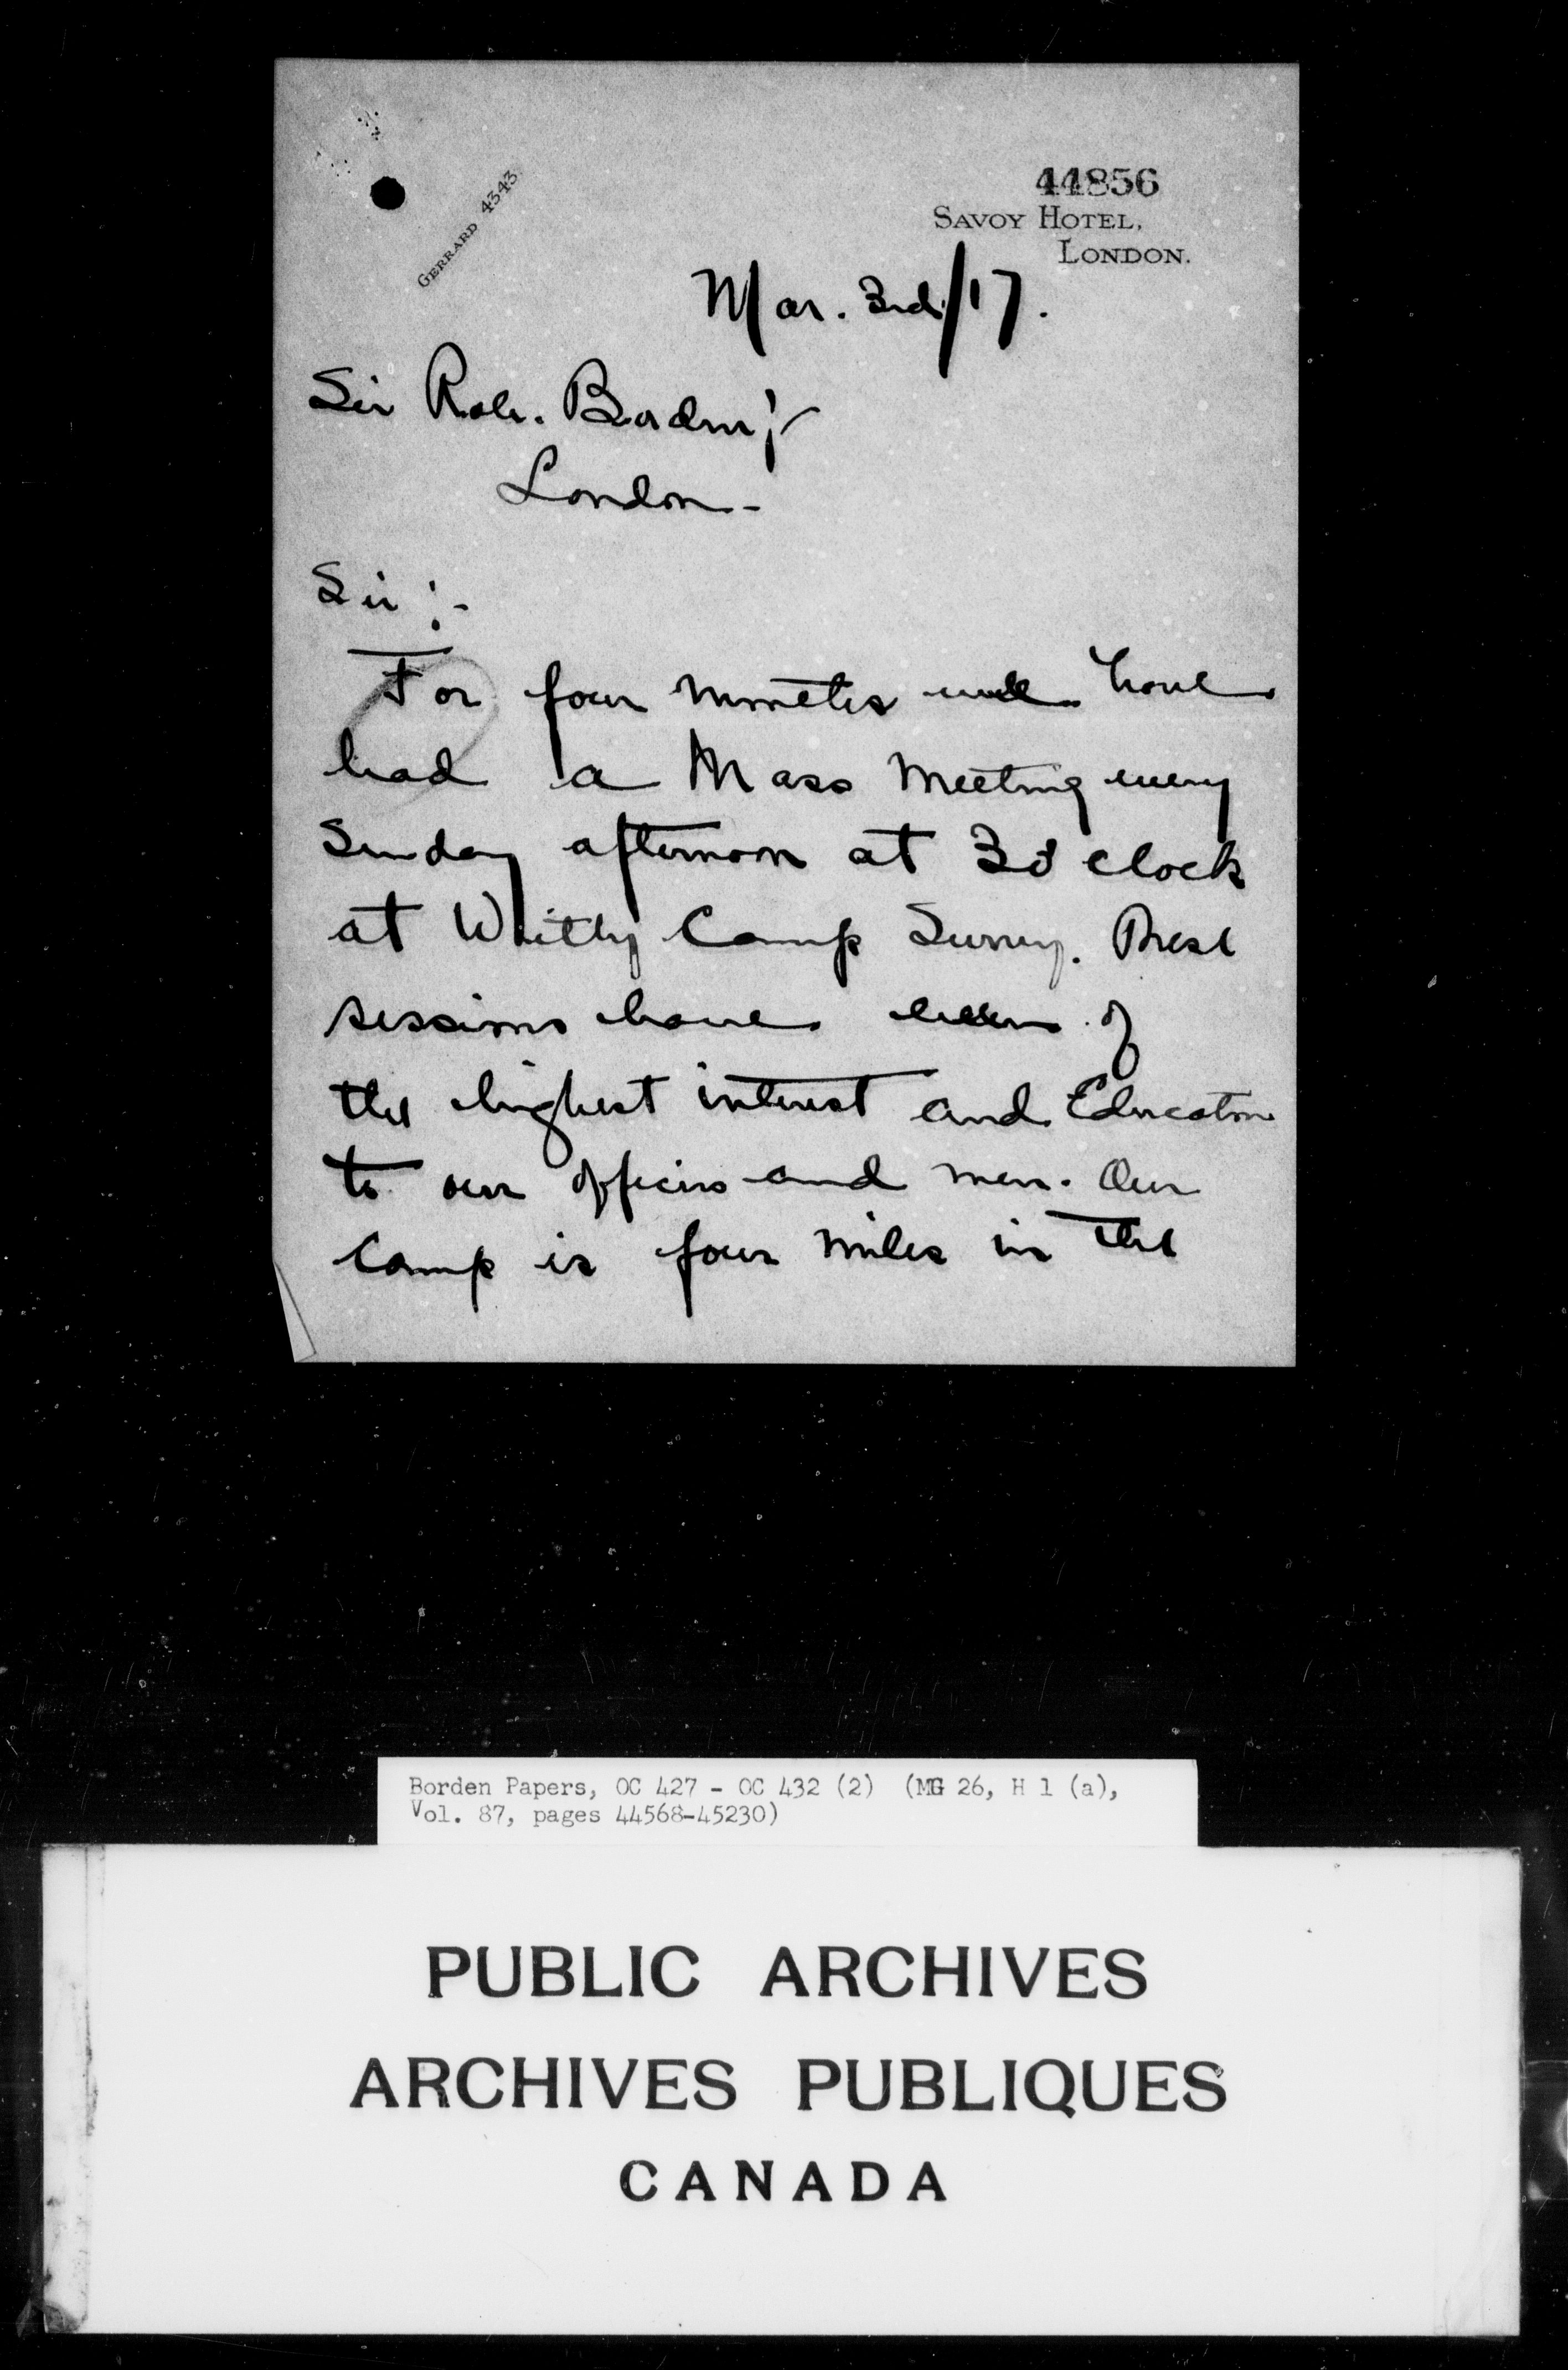 44856
GERRARD 4343
SAVOY HOTEL,
LONDON.
Mar. 3rd/17.
Sir Rob. Borden;-
London-
Sir:-
For four months we have
had a Mass Meeting every
Sunday afternoon at 3 o'clock
at Whitly Camp Surrey. These
sessions have been of
the highest interest and Education
to our officers and men. Our
Camp is four miles in the
Borden Papers, OC 427 - OC 432 (2) (MG 26, H 1 (a),
Vol. 87, pages 44568-45230)
PUBLIC ARCHIVES
ARCHIVES PUBLIQUES
CANADA